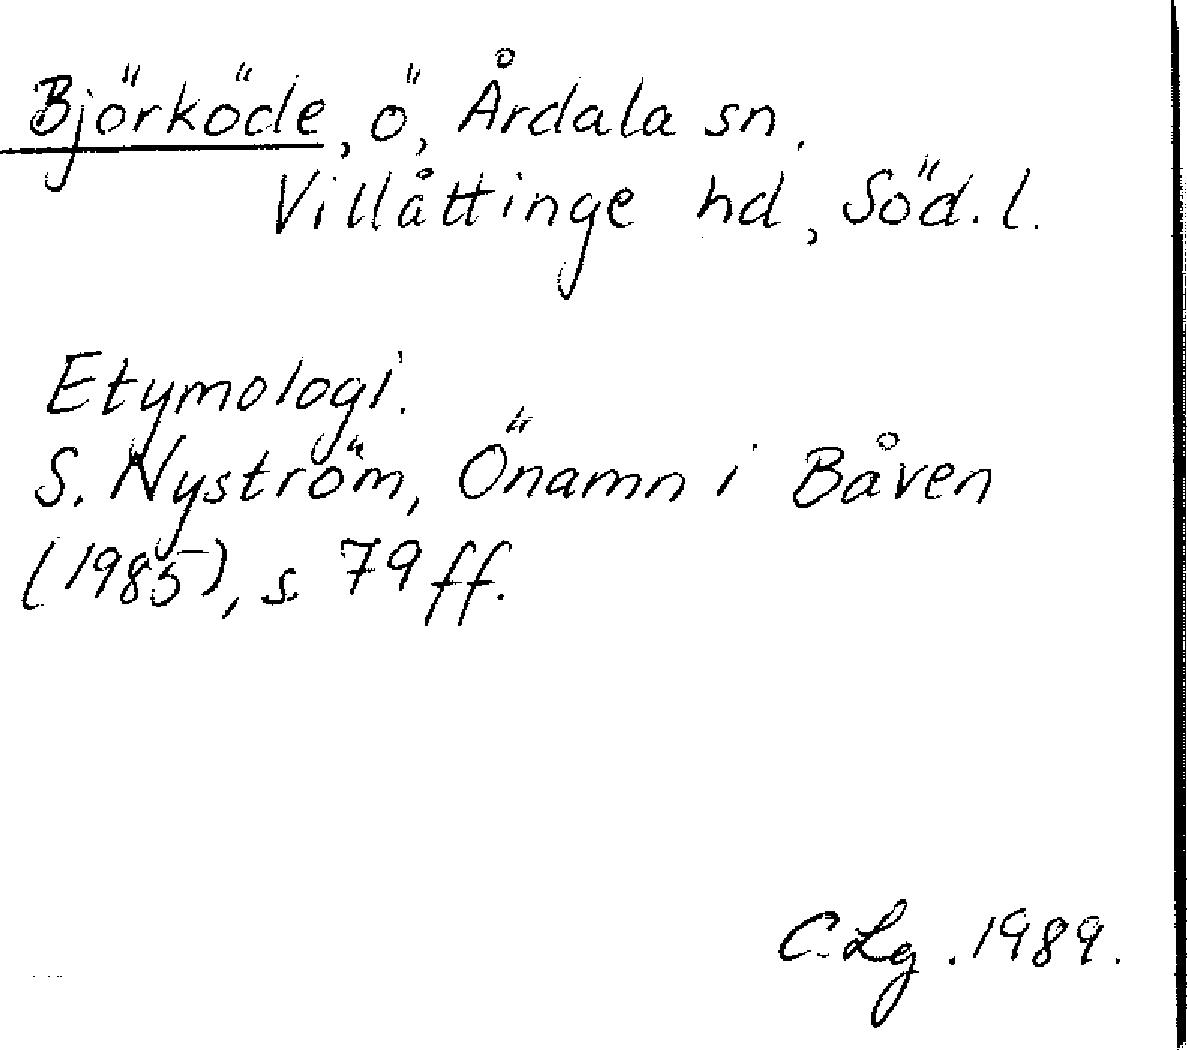 Björköde, ö, Årdala sn.
Villåttinge hd, Söd. l.
Etymologi.
S. Nyström, Önamn i Båven
(1985), s. 79 ff.
C. Lg. 1989.